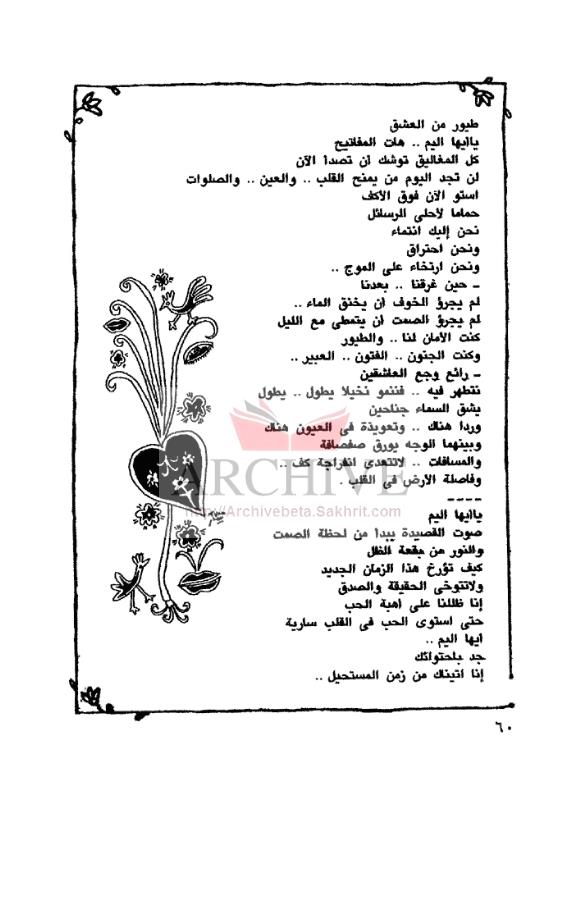 طيور من العشق
ياأيها اليم .. هات المفاتيح
كل المغاليق توشك ان تصدأ الآن
لن تجد اليوم من يمنح القلب .. والعين .. والصلوات
استو الآن فوق الأكف
حماما لأحلى الرسائل
نحن إليك انتماء
ونحن احتراق
ونحن ارتخاء على الموج ..
ـ حين غرقنا .. بعدنا
لم يجرؤ الخوف ان يخنق الماء ..
لم يجرؤ الصمت ان يتمطى مع الليل
كنت الأمان لنا .. والطيور
وكنت الجنون .. الفتون .. العبير ..
ـ رائع وجع العاشقين
نتطهر فيه .. فننمو نخيلا يطول .. يطول
يشق السماء جناحين
وردا هناك .. وتعويذة فى العيون هناك
وبينهما الوجه يورق صفصافة
والمسافات .. لاتتعدى انفراجة كف ..
وفاصلة الأرض فى القلب .
ـ ـ ـ ـ
ARCHIVE
http://Archivebeta.Sakhrit.com
ياأيها اليم
صوت القصيدة يبدأ من لحظة الصمت
والنور من بقعة الظل
كيف تؤرخ هذا الزمان الجديد
ولاتتوخى الحقيقة والصدق
إنا ظللنا على أهبة الحب
حتى استوى الحب فى القلب سارية
ايها اليم ..
جد باحتوائك
إنا اتيناك من زمن المستحيل ..
٦٠